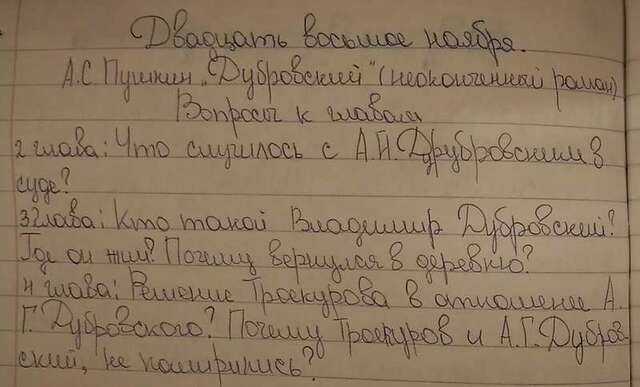 Двадцать восьмое ноября.
А.С Пушкин „Дубровский" (неоконченный роман)
Вопросы к главам
2 глава: Что случилось с А.Й. Друбровским в
суде?
3 глава: Кто такой Владимир Дубровский?
Где он жил? Почему вернулся в деревню?
4 глава: Решение Троекурова в отношение А.
Г. Дубровского? Почему Троекуров и А.Г. Дубров-
ский, не помирились?